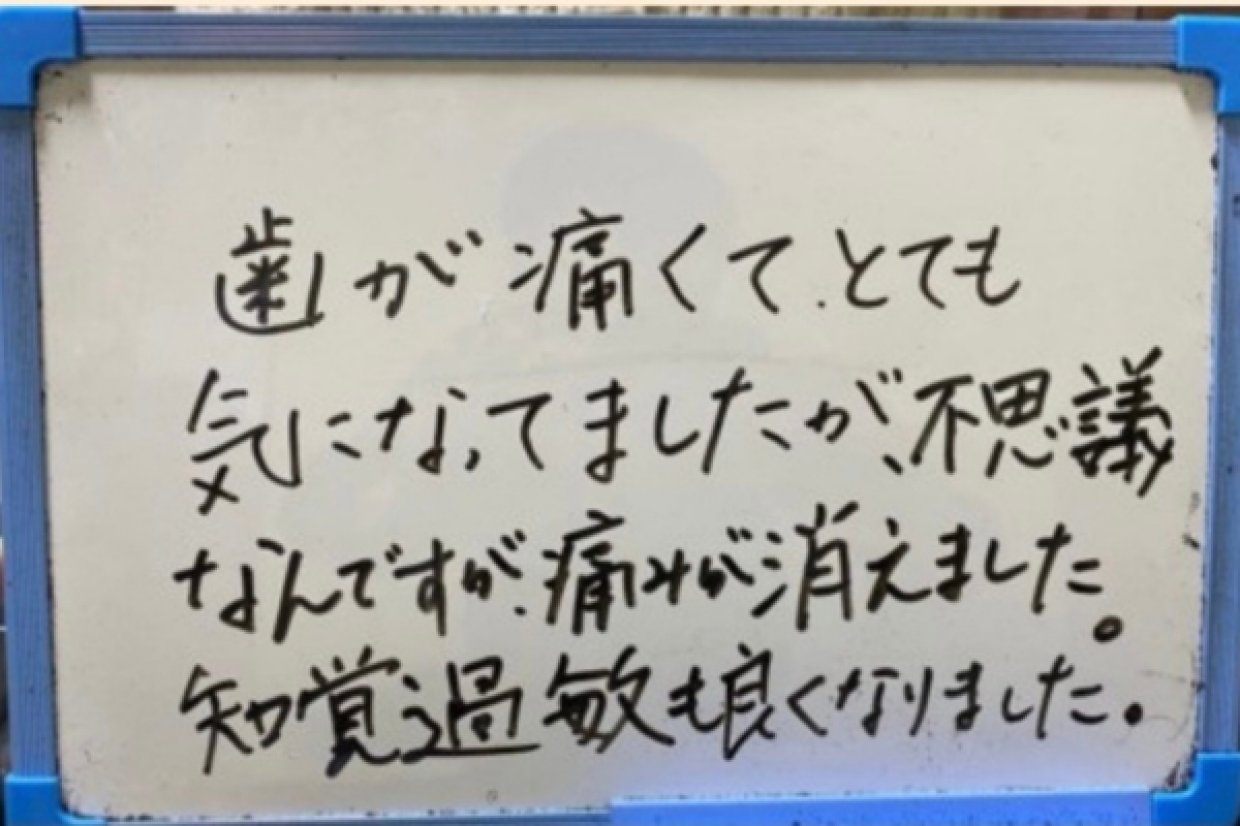 歯が痛くて、とても
気になってましたが、不思議
なんですが、痛みが消えました。
知覚過敏も良くなりました。